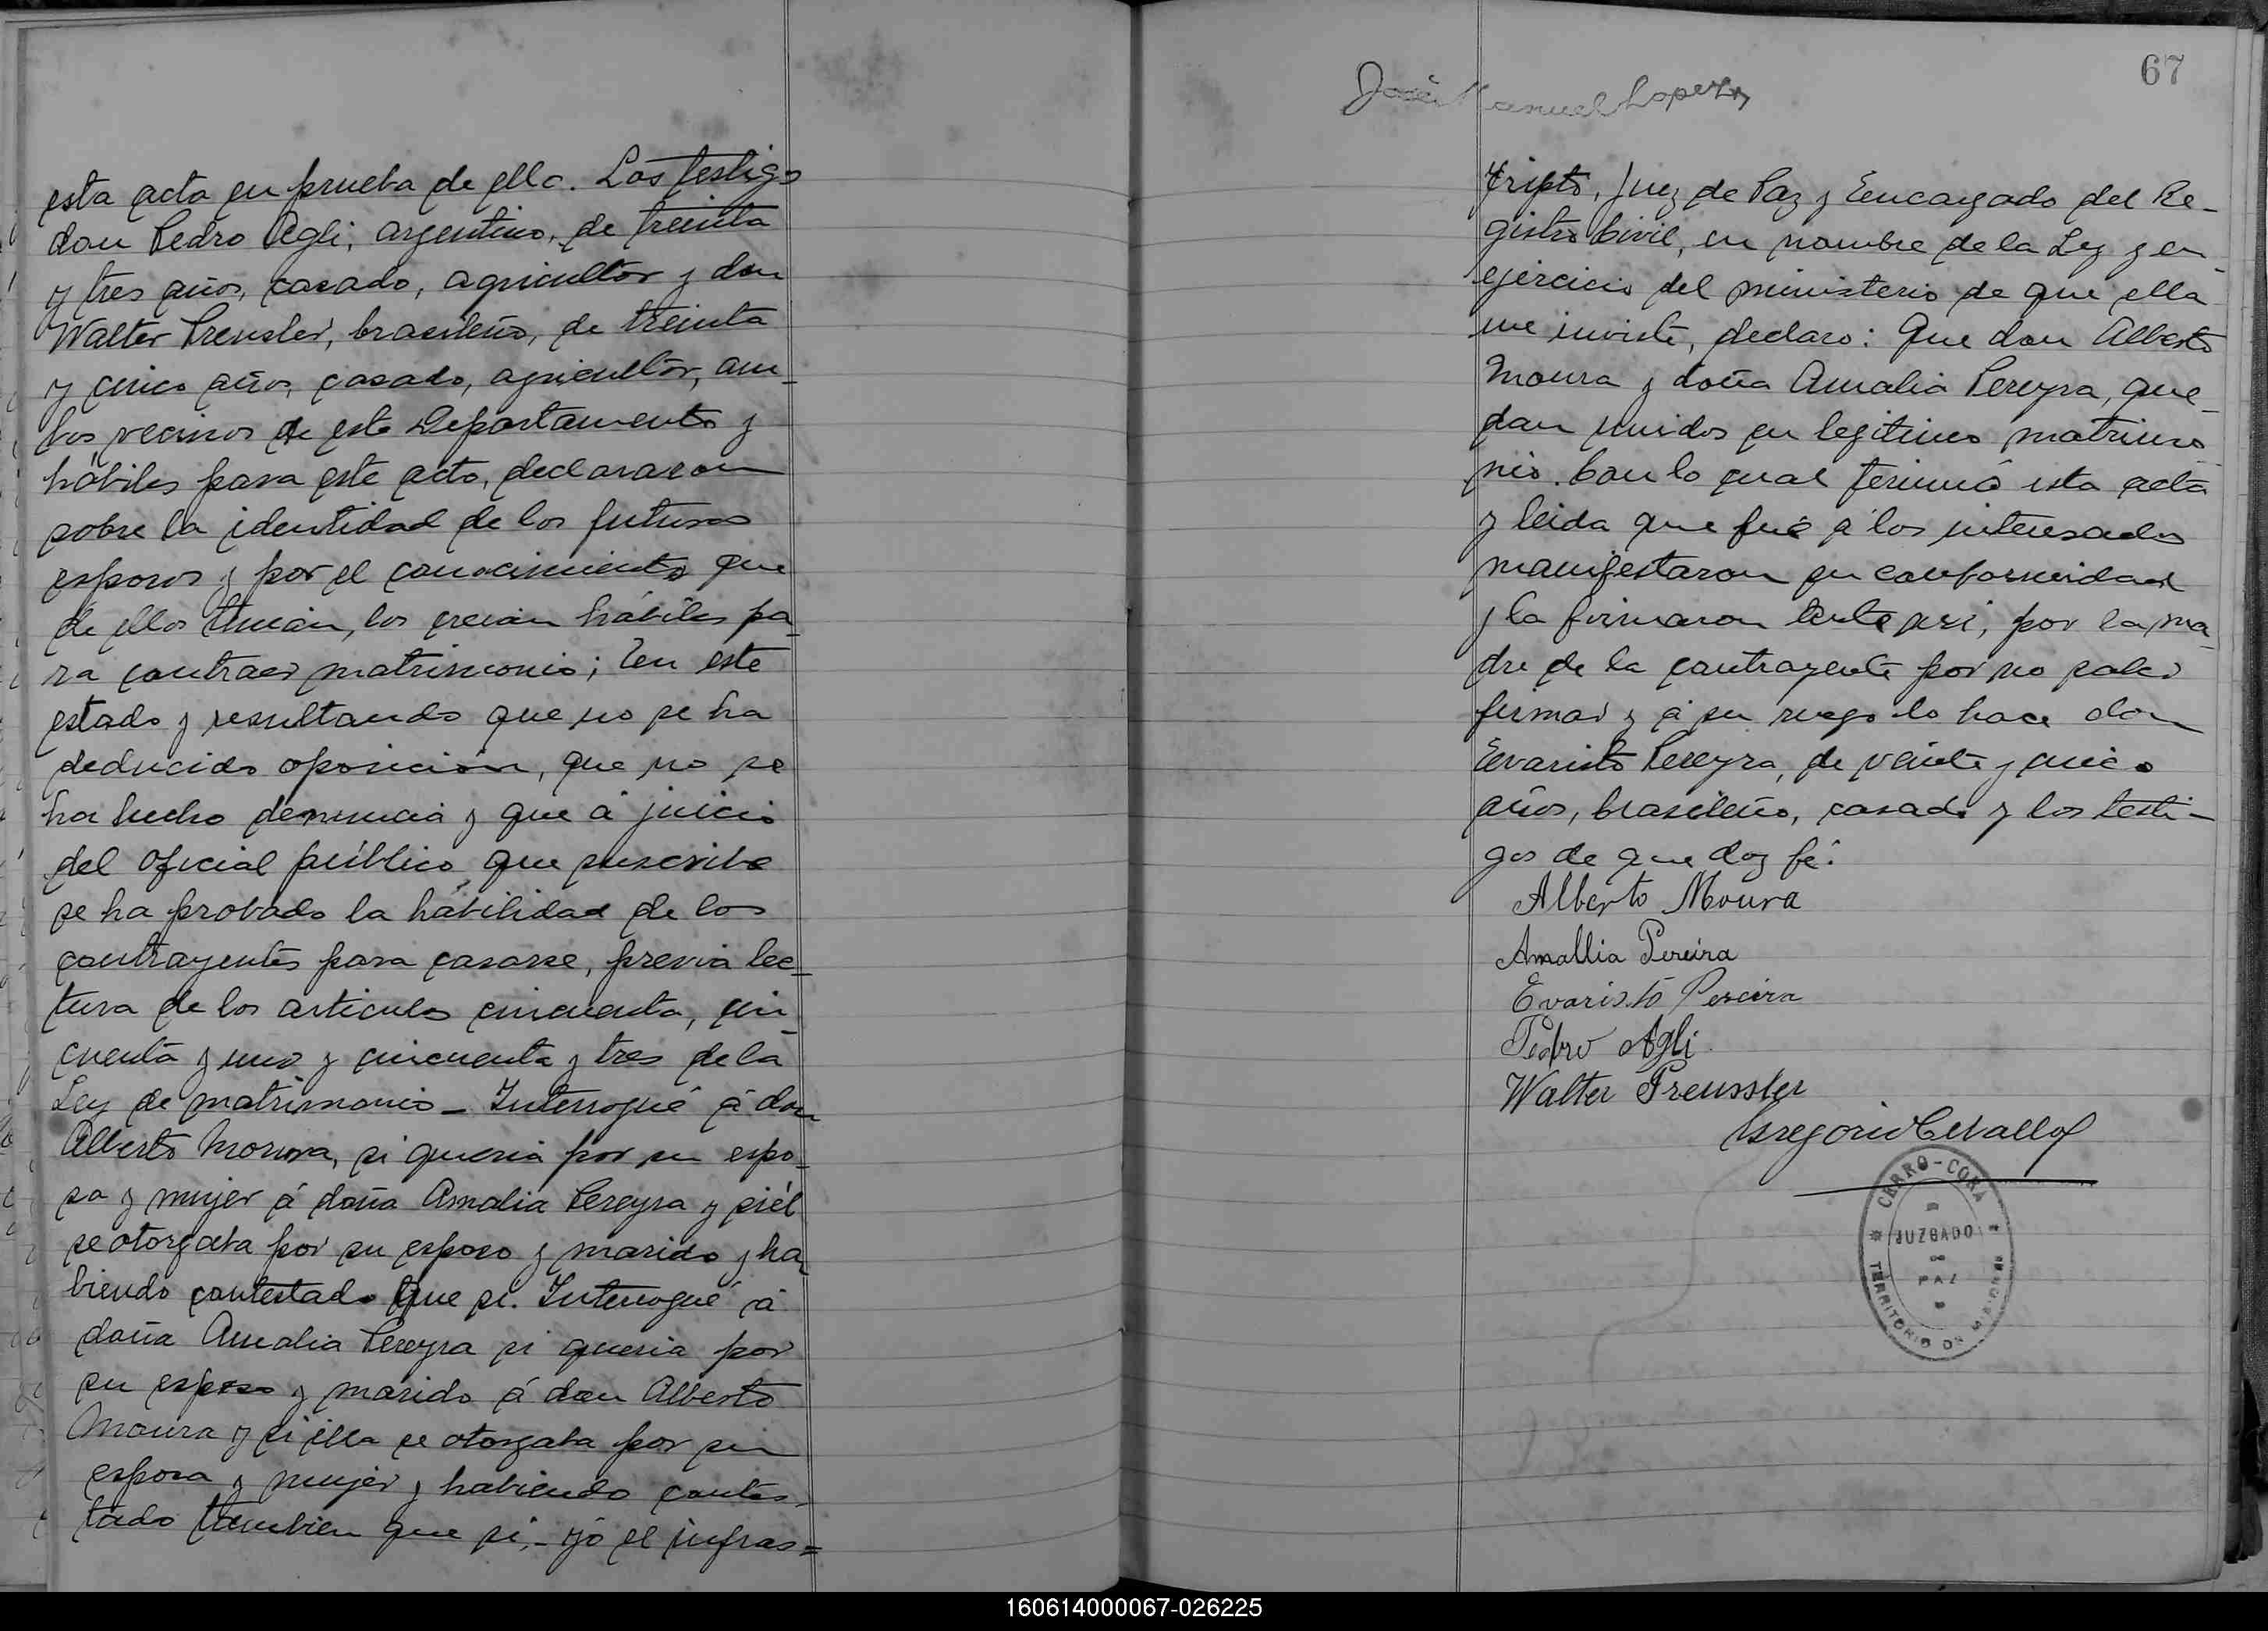 esta acta en prueba de ello. Los testigos
don Pedro Agli, argentino, de treinta
y tres años, casado, agricultor y don
Walter Preusler, brasileño, de treinta
y cinco años, casado, agricultor, am-
bos vecinos de este Departamento y
hábiles para este acto, declararon
sobre la identidad de los futuros
esposos y por el conocimiento que
de ellos tenian, los creian hábiles pa-
ra contraer matrimonio; En este
estado y resultando que no se ha
deducido oposición, que no se
ha hecho denuncia y que á juicio
del oficial público que suscribe
se ha probado la habilidad de los
contrayentes para casarse, previa lec-
tura de los articulos cincuenta, cin-
cuenta y uno y cincuenta y tres de la
Ley de matrimonio - Interrogué á don
Alberto Moura, si queria por su espo-
sa y mujer á doña Amalia Pereyra y si él
se otorgaba por su esposo y marido y ha-
biendo contestado que si. Interrogué á
doña Amalia Pereyra si queria por
su esposo y marido á don Alberto
Moura y si ella se otorgaba por su
esposa y mujer y habiendo contes-
tado tambien que si, - yo el infras=
67
José Manuel Lopez
cripto, Juez de Paz y Encargado del Re-
gistro Civil, en nombre de la Ley y en
ejercicio del ministerio de que ella
me inviste, declaro: Que don Alberto
Moura y doña Amalia Pereyra, que-
dan unidos en legitimo matrimo-
nio. Con lo cual terminó esta acta
y leida que fué á los interesados
manifestaron su conformidad
y la firmaron ante mi, por la ma-
dre de la contrayente por no saber
firmar y á su ruego lo hace don
Evaristo Pereyra, de veinte y cinco
años, brasileño, casado y los testi-
gos de que doy fé.
Alberto Moura
Amallia Pereira
Evaristo Pereira
Pedro Agli
Walter Preussler
Gregorio Cevallos
CERRO-CORA
JUZGADO
DE
PAZ
TERRITORIO DE MISIONES
160614000067-026225